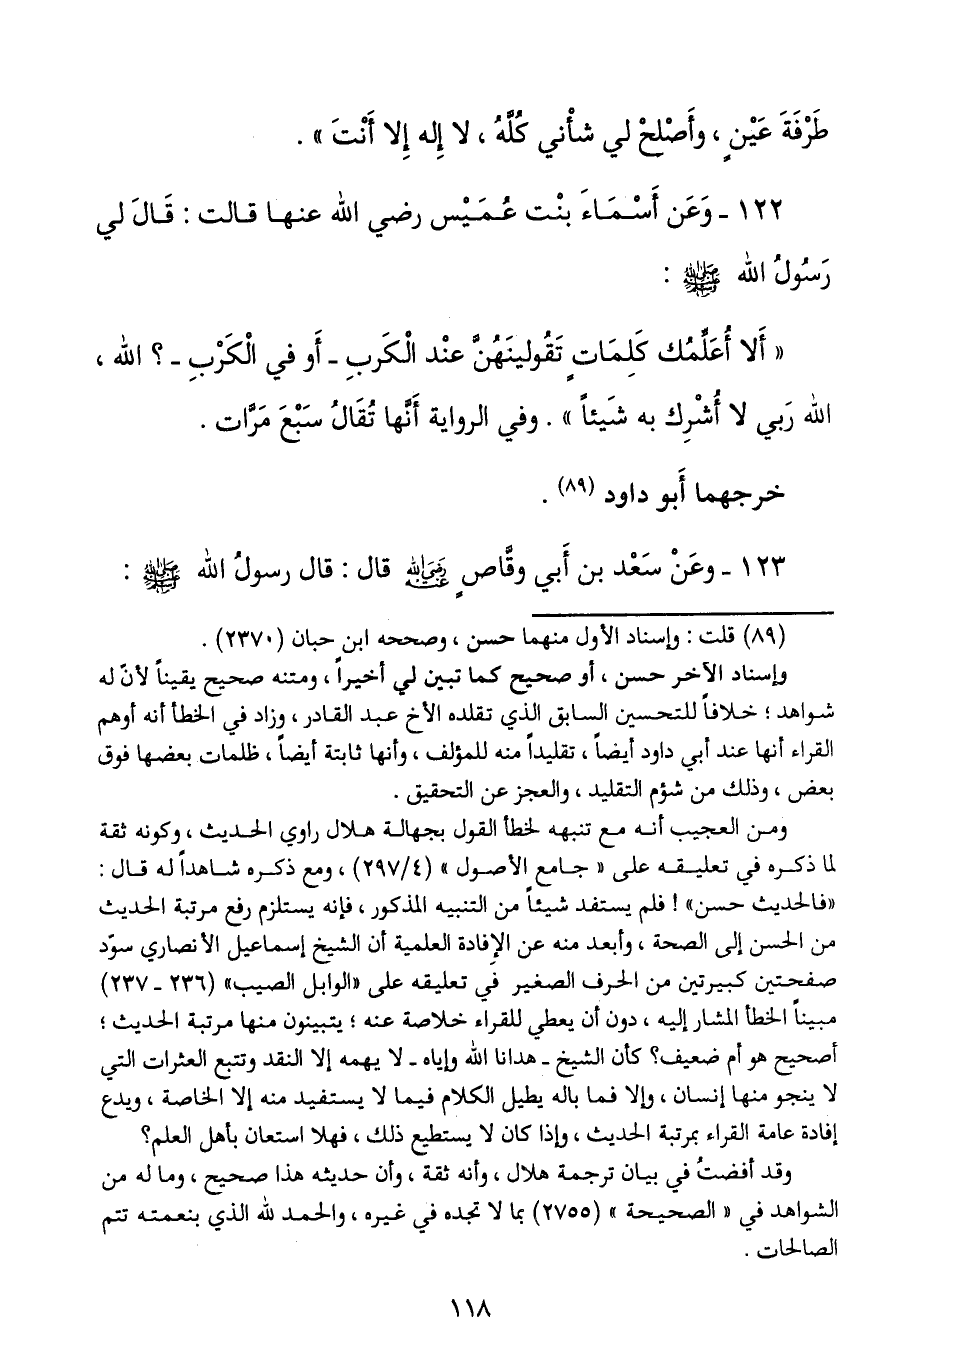 طَرْفَةَ عَيْنٍ ، وأَصْلحْ لي شأْني كُلَّهُ ، لا إِله إِلا أَنْتَ » .
١٢٢ ـ وَعَن أَسْمَاءَ بنْت عُمَيْس رضي الله عنها قالت : قَالَ لي
رَسُولُ الله ﷺ :
« أَلا أُعَلِّمُك كَلِمَاتٍ تَقُولينَهُنَّ عنْد الْكَربِ ـ أَو في الْكَرْبِ ـ ؟ الله ،
الله رَبي لا أُشْرِك به شَيئاً » . وفي الرواية أَنَّها تُقَالُ سَبْعَ مَرَّات .
خرجهما أَبو داود (٨٩) .
١٢٣ ـ وعَنْ سَعْد بن أَبي وقَّاصٍ رضي الله عنه قال : قال رسولُ الله ﷺ :
(٨٩) قلت : وإسناد الأول منهما حسن ، وصححه ابن حبان (٢٣٧٠) .
وإسناد الآخر حسن ، أو صحيح كما تبين لي أخيراً ، ومتنه صحيح يقيناً لأنّ له
شواهد ؛ خلافاً للتحسين السابق الذي تقلده الأخ عبد القادر ، وزاد في الخطأ أنه أوهم
القراء أنها عند أبي داود أيضاً ، تقليداً منه للمؤلف ، وأنها ثابتة أيضاً ، ظلمات بعضها فوق
بعض ، وذلك من شؤم التقليد ، والعجز عن التحقيق .
ومن العجيب أنه مع تنبهه لخطأ القول بجهالة هلال راوي الحديث ، وكونه ثقة
لما ذكره في تعليقه على « جامع الأصول » (٤/٢٩٧) ، ومع ذكره شاهداً له قال :
«فالحديث حسن» ! فلم يستفد شيئاً من التنبيه المذكور ، فإنه يستلزم رفع مرتبة الحديث
من الحسن إلى الصحة ، وأبعد منه عن الإفادة العلمية أن الشيخ إسماعيل الأنصاري سوّد
صفحتين كبيرتين من الحرف الصغير في تعليقه على «الوابل الصيب» (٢٣٦ ـ ٢٣٧)
مبيناً الخطأ المشار إليه ، دون أن يعطي للقراء خلاصة عنه ؛ يتبينون منها مرتبة الحديث ؛
أصحيح هو أم ضعيف؟ كأن الشيخ ـ هدانا الله وإياه ـ لا يهمه إلا النقد وتتبع العثرات التي
لا ينجو منها إنسان ، وإلا فما باله يطيل الكلام فيما لا يستفيد منه إلا الخاصة ، ويدع
إفادة عامة القراء بمرتبة الحديث ، وإذا كان لا يستطيع ذلك ، فهلا استعان بأهل العلم؟
وقد أفضتُ في بيان ترجمة هلال ، وأنه ثقة ، وأن حديثه هذا صحيح ، وما له من
الشواهد في « الصحيحة » (٢٧٥٥) بما لا تجده في غيره ، والحمد لله الذي بنعمته تتم
الصالحات .
١١٨